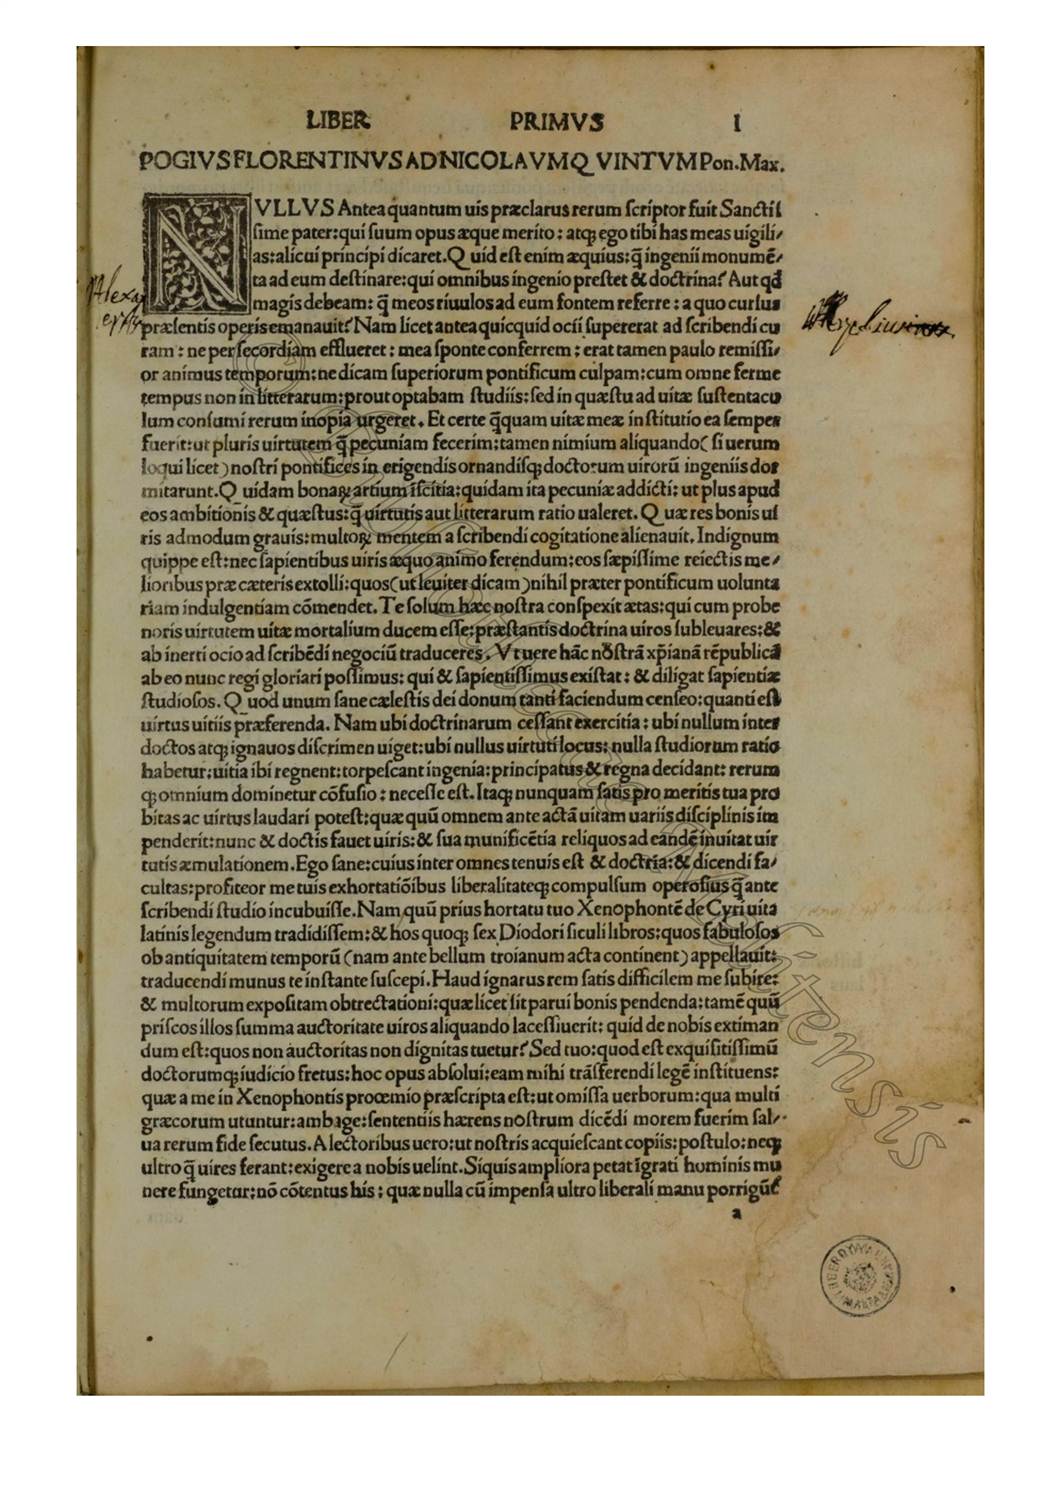 LIBER PRIMVS I
POGIVS FLORENTINVS AD NICOLAVM Q VINTVM Pon. Max.
NVLLVS Antea quantum uis præclarus rerum ſcriptor fuit Sanctiſ
ſime pater: qui ſuum opus æque merito: atq; ego tibi has meas uigili/
as: alicui principi dicaret. Q uid eſt enim æquius: q̃ ingenii monumē/
ta ad eum deſtinare: qui omnibus ingenio preſtet & doctrina? Aut qd
magis debeam: q̃ meos riuulos ad eum fontem referre: a quo curſus
præſentis operis emanauit? Nam licet antea quicquid ocii ſupererat ad ſcribendi cu
ram: ne per ſecordiam efflueret: mea ſponte conferrem; erat tamen paulo remiſſi/
or animus temporum: ne dicam ſuperiorum pontificum culpam: cum omne ferme
tempus non in litterarum: prout optabam ſtudiis: ſed in quæſtu ad uitæ ſuſtentacu
lum conſumi rerum inopia urgeret. Et certe q̃quam uitæ meæ inſtitutio ea ſemper
fuerit: ut pluris uirtutem q̃ pecuniam fecerim: tamen nimium aliquando (ſi uerum
loqui licet) noſtri pontifices in erigendis ornandiſq; doctorum uirorū ingeniis dor
mitarunt. Q uidam bonaꝝ artium ĩſcitia: quidam ita pecuniæ addicti: ut plus apud
eos ambitionis & quæſtus: q̃ uirtutis aut litterarum ratio ualeret. Q uæ res bonis ui
ris admodum grauis: multoꝝ mentem a ſcribendi cogitatione alienauit. Indignum
quippe eſt: nec ſapientibus uiris æquo animo ferendum: eos ſæpiſſime reiectis me/
lioribus præ cæteris extolli: quos (ut leuiter dicam) nihil præter pontificum uolunta
riam indulgentiam cōmendet. Te ſolum hæc noſtra conſpexit ætas: qui cum probe
noris uirtutem uitæ mortalium ducem eſſe: præſtantis doctrina uiros ſubleuares: &
ab inerti ocio ad ſcribēdi negociū traduceres. Vt uere hāc noſtrā xp̄ianā rēpublicā
ab eo nunc regi gloriari poſſimus: qui & ſapientiſſimus exiſtat: & diligat ſapientiæ
ſtudioſos. Q uod unum ſane cæleſtis dei donum tanti faciendum cenſeo: quanti eſt
uirtus uitiis præferenda. Nam ubi doctrinarum ceſſant exercitia: ubi nullum inter
doctos atq; ignauos diſcrimen uiget: ubi nullus uirtuti locus: nulla ſtudiorum ratio
habetur: uitia ibi regnent: torpeſcant ingenia: principatus & regna decidant: rerum
q; omnium dominetur cōfuſio: neceſſe eſt. Itaq; nunquam ſatis pro meritis tua pro
bitas ac uirtus laudari poteſt: quæ quū omnem ante actā uitam uariis diſciplinis im
penderit: nunc & doctis fauet uiris: & ſua munificētia reliquos ad eandē inuitat uir
tutis æmulationem. Ego ſane: cuius inter omnes tenuis eſt & doctria: & dicendi fa/
cultas: profiteor me tuis exhortatiōibus liberalitateq; compulſum operoſius q̃ ante
ſcribendi ſtudio incubuiſſe. Nam quū prius hortatu tuo Xenophontē de Cyri uita
latinis legendum tradidiſſem: & hos quoq; ſex Diodori ſiculi libros: quos fabuloſos
ob antiquitatem temporū (nam ante bellum troianum acta continent) appellauit:
traducendi munus te inſtante ſuſcepi. Haud ignarus rem ſatis difficilem me ſubire:
& multorum expoſitam obtrectationi: quæ licet ſit parui bonis pendenda: tamē quū
priſcos illos ſumma auctoritate uiros aliquando laceſſiuerit: quid de nobis extiman
dum eſt: quos non auctoritas non dignitas tuetur? Sed tuo: quod eſt exquiſitiſſimū
doctorumq; iudicio fretus: hoc opus abſolui: eam mihi trāſferendi legē inſtituens:
quæ a me in Xenophontis proœmio præſcripta eſt: ut omiſſa uerborum: qua multi
græcorum utuntur: ambage: ſententiis hærens noſtrum dicēdi morem fuerim ſal/
ua rerum fide ſecutus. A lectoribus uero: ut noſtris acquieſcant copiis: poſtulo: neq;
ultro q̃ uires ferant: exigere a nobis uelint. Siquis ampliora petat īgrati hominis mu
nere fungetur: nō cōtentus his: quæ nulla cū impenſa ultro liberali manu porrigūt̃
a